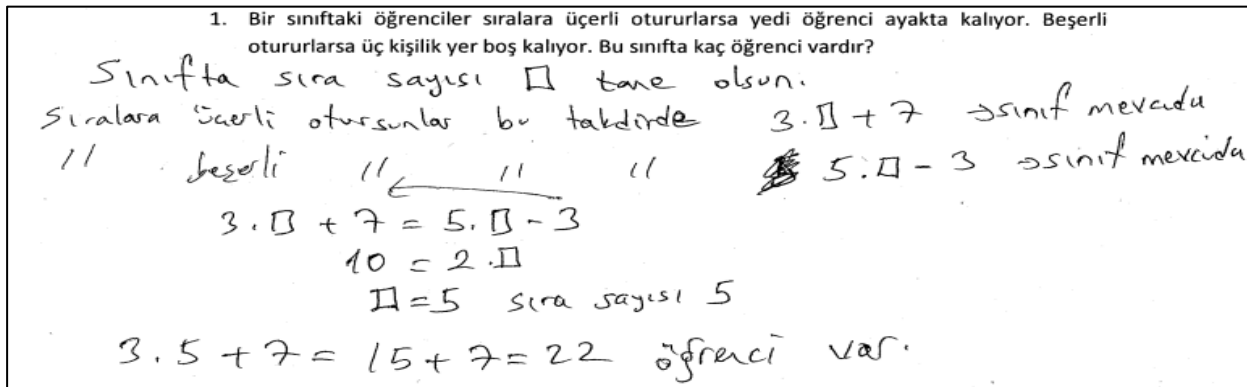 1. Bir sınıftaki öğrenciler sıralara üçerli otururlarsa yedi öğrenci ayakta kalıyor. Beşerli
otururlarsa üç kişilik yer boş kalıyor. Bu sınıfta kaç öğrenci vardır?
Sınıfta sıra sayısı □ tane olsun.
Sıralara üçerli otursunlar bu takdirde 3.□ + 7 → sınıf mevcudu
// beşerli // // // 5.□ - 3 → sınıf mevcudu
3.□ + 7 = 5.□ - 3
10 = 2.□
□ = 5 sıra sayısı 5
3.5 + 7 = 15 + 7 = 22 öğrenci var.